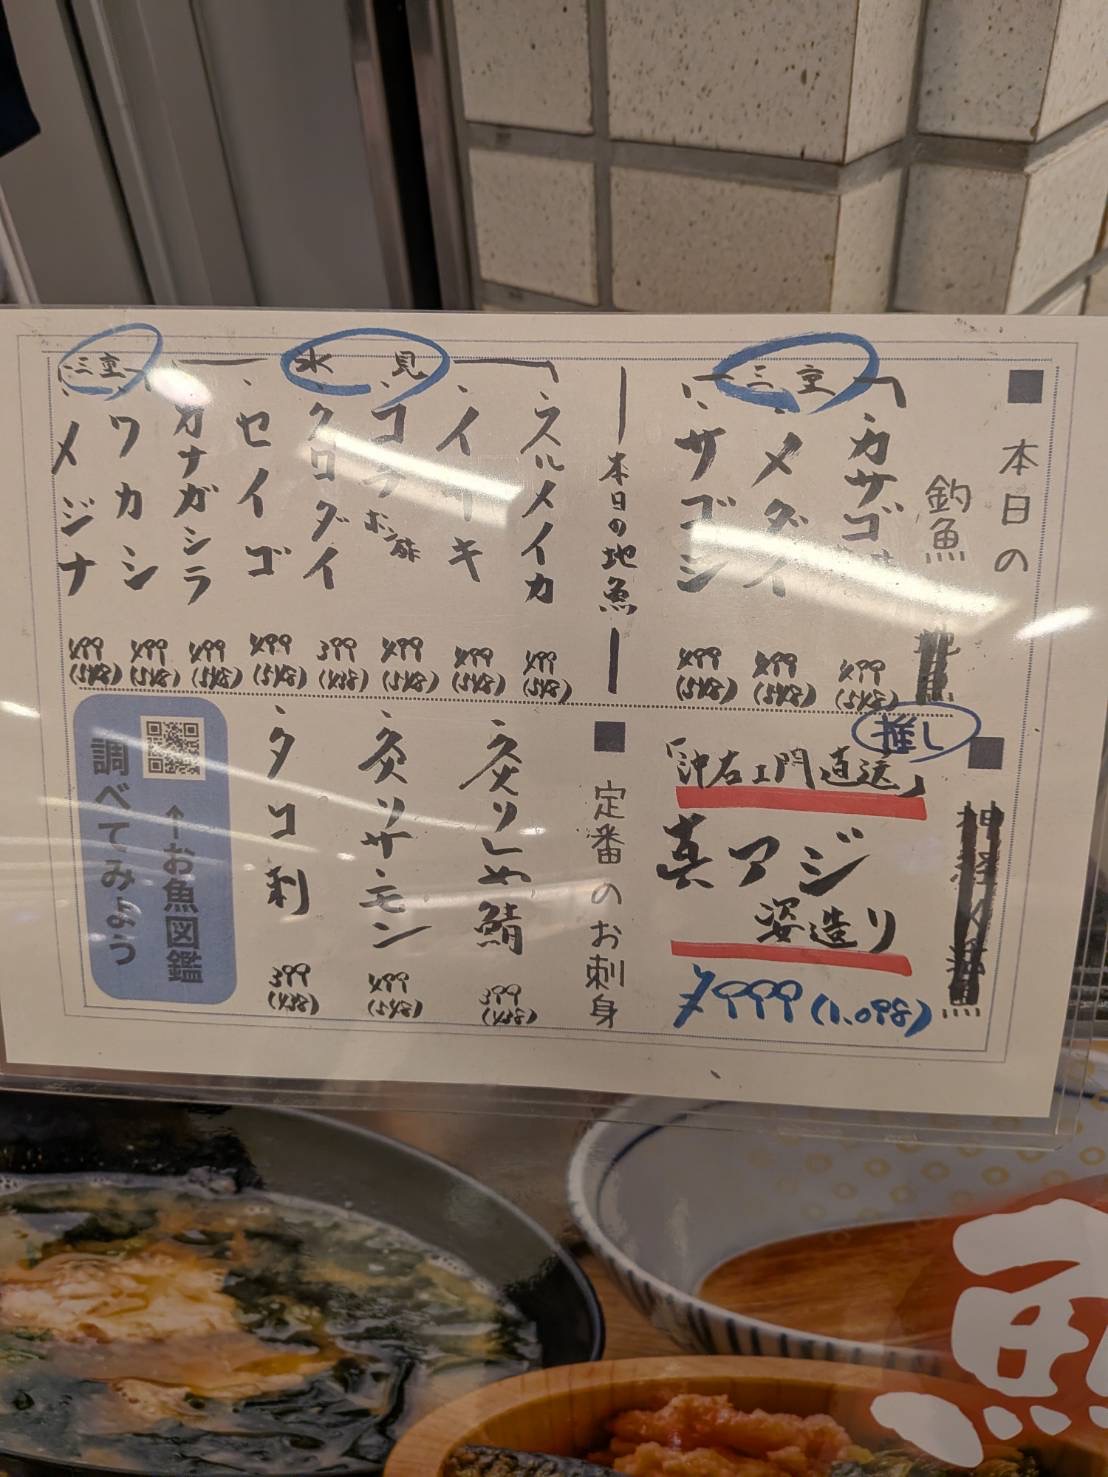 ■ 本日の
釣魚
三重
カサゴ
499
(548)
メダイ
499
(548)
サゴシ
499
(548)
本日の地魚
氷見
スルメイカ
499
(548)
イサキ
499
(548)
コチ
ポン酢
499
(548)
クロダイ
399
(438)
セイゴ
499
(548)
カナガシラ
499
(548)
三重
ワカシ
499
(548)
メジナ
499
(548)
■
推し
「沖右エ門直送」
真アジ
姿造り
¥999(1,098)
■ 定番のお刺身
炙りしめ鯖
399
(438)
炙りサーモン
499
(548)
タコ刺
399
(438)
↑お魚図鑑
調べてみよう
魚